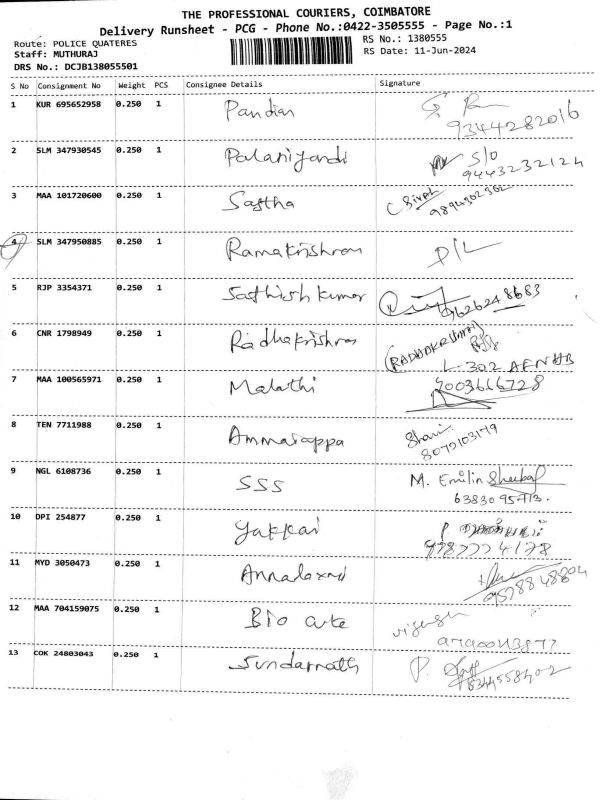 THE PROFESSIONAL COURIERS, COIMBATORE
Delivery Runsheet - PCG - Phone No.:0422-3505555 - Page No.:1
Route: POLICE QUATERES
RS No.: 1380555
Staff: MUTHURAJ
RS Date: 11-Jun-2024
DRS No.: DCJB138055501
S No Consignment No Weight PCS Consignee Details Signature
1 KUR 695652958 0.250 1 Pandian
9344282016
2 SLM 347930545 0.250 1 Palaniyandi S/O
9443232124
3 MAA 101720600 0.250 1 Sastha
9894302302
4 SLM 347950885 0.250 1 Ramakrishnan D/L
5 RJP 3354371 0.250 1 Sathish kumar
9626248683
6 CNR 1798949 0.250 1 Radhakrishnan
L-302 AFNHB
7 MAA 100565971 0.250 1 Malathi 9003616728
8 TEN 7711988 0.250 1 Ammaiappa
8072103179
9 NGL 6108736 0.250 1 SSS M. Emilin Sheeba
63830 95713.
10 DPI 254877 0.250 1 Yakkai P
9787774178
11 MYD 3050473 0.250 1
9578848804
12 MAA 704159075 0.250 1 Bio
13 COK 24803043 0.250 1 Sundarnath P.
8344558402